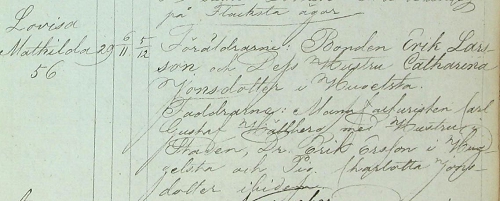 på Stacksta ägor
Lovisa
Mathilda 29 6/11 5/12
56
Föräldrarne: Bonden Erik Lars-
son och Dess Hustru Catharina
Jonsdotter i Hugelsta.
Faddrarne: Carl
Gustaf Hallberg med Hustru i
Staden, Dr. Erik Ersson i Hug-
gelsta och Pig. Charlotta Jons-
dotter ibidem.